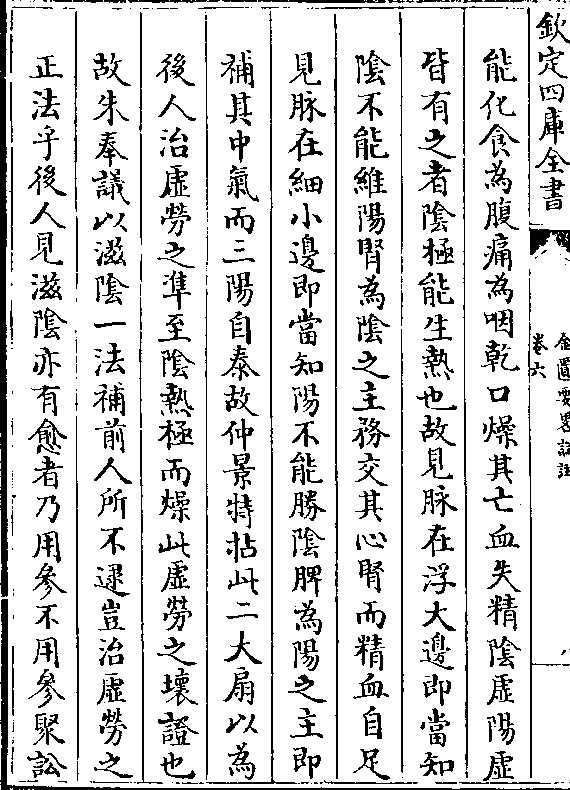 欽定四庫全書
金匱要畧論註
卷六
能化食為腹痛為咽乾口燥其亡血失精陰虛陽虛
皆有之者陰極能生熱也故見脉在浮大邊即當知
陰不能維陽腎為陰之主務交其心腎而精血自足
見脉在細小邊即當知陽不能勝陰脾為陽之主即
補其中氣而三陽自泰故仲景特拈此二大扇以為
後人治虛勞之準至陰熱極而燥此虛勞之壞證也
故朱奉議以滋陰一法補前人所不逮豈治虛勞之
正法乎後人見滋陰亦有愈者乃用參不用參聚訟